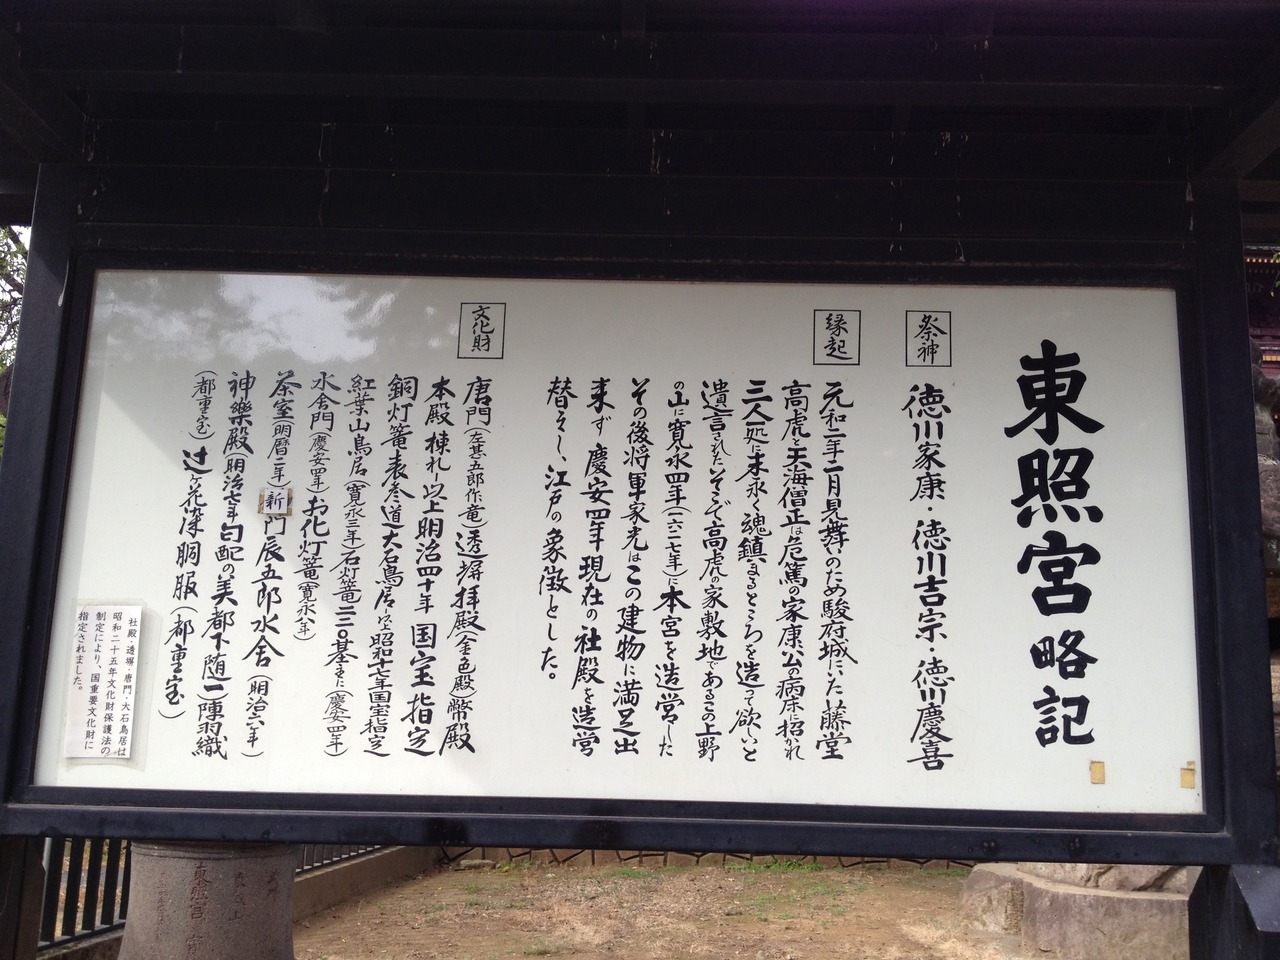 東照宮略記
祭神
徳川家康・徳川吉宗・徳川慶喜
縁起
元和二年二月見舞いのため駿府城にいた藤堂
高虎と天海僧正は危篤の家康公の病床に招かれ
三人一処に末永く魂鎮まるところを造って欲しいと
遺言されたそこで高虎の家敷地であるこの上野
の山に寛永四年(一六二七年)に本宮を造営した
その後将軍家光はこの建物に満足出
来ず慶安四年現在の社殿を造営
替えし、江戸の象徴とした。
文化財
唐門(左甚五郎作竜)透塀拝殿(金色殿)幣殿
本殿棟札以上明治四十年国宝指定
銅灯篭表参道大石鳥居以上昭和十七年国宝指定
紅葉山鳥居(寛永三年)石灯篭二三〇基まに(慶安四年)
水舎門(慶安四年)お化灯篭(寛永八年)
茶室(明暦二年)新門辰五郎水舎(明治六年)
神樂殿(明治七年勾配の美都下随一)陳羽織
(都重宝)辻ヶ花染胴服(都重宝)
社殿・透塀・唐門・大石鳥居は
昭和二十五年文化財保護法の
制定により、国重要文化財に
指定されました。
東照宮